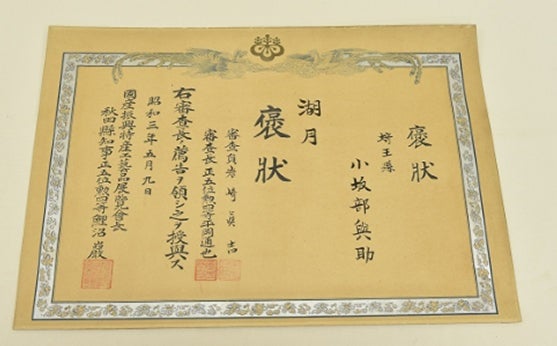 褒狀
埼玉縣
小坂部與助
湖月
褒狀
審査員岩崎眞吉
審査長正五位勲四等平岡通也
右審査長ノ薦告ヲ領シ之ヲ授與ス
昭和三年五月九日
國産振興特産工藝品展覽會長
秋田縣知事正五位勲四等鯉沼巌